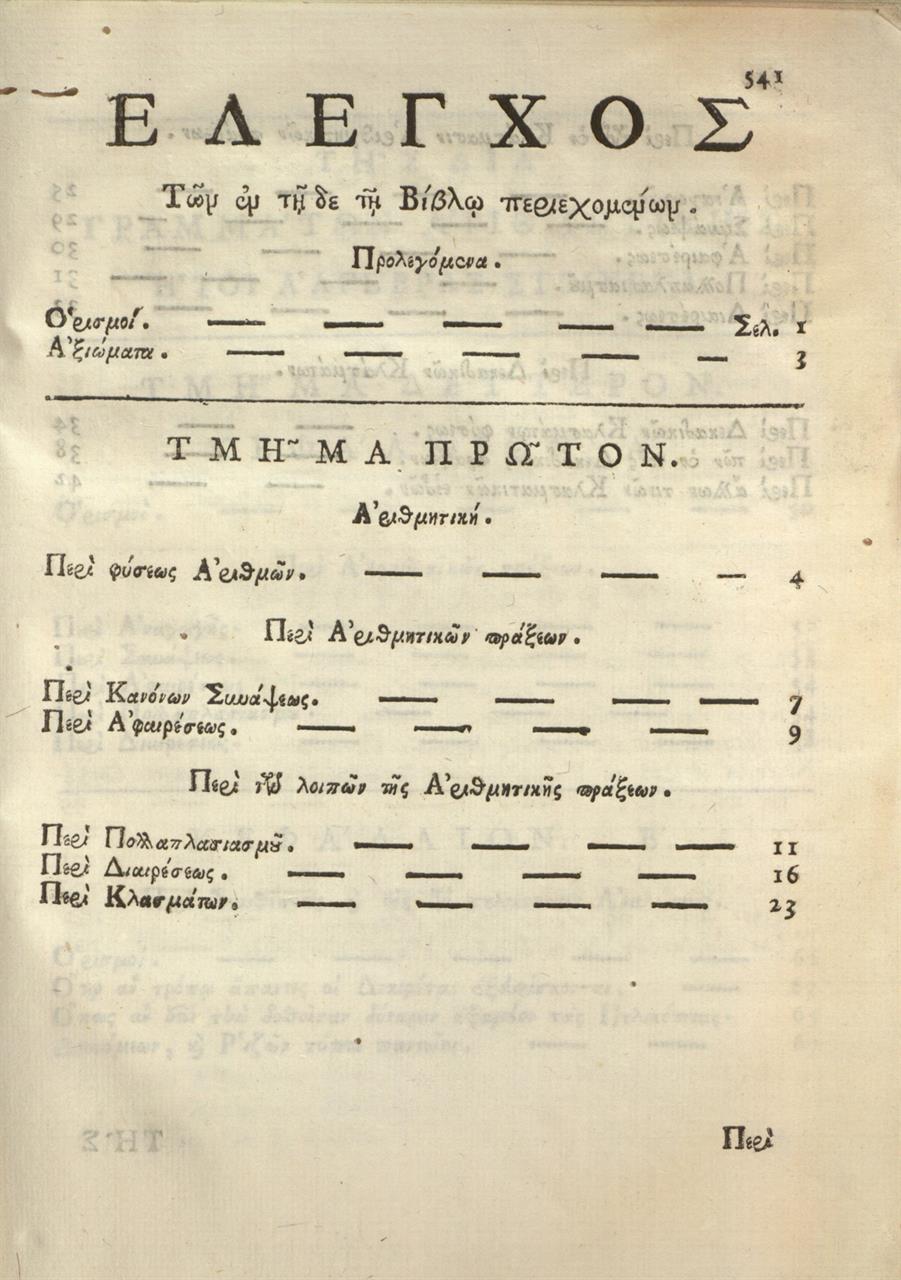 541
ΕΛΕΓΧΟΣ
Τῶν ἐν τῇδε τῇ Βίβλῳ περιεχομένων.
Προλεγόμενα.
Ὁρισμοί. — — — — — Σελ. 1
Ἀξιώματα. — — — — — 3
ΤΜΗ͂ΜΑ ΠΡΩ͂ΤΟΝ.
Ἀριθμητική.
Περὶ φύσεως Ἀριθμῶν. — — — — 4
Περὶ Ἀριθμητικῶν πράξεων.
Περὶ Κανόνων Συνάψεως. — — — — 7
Περὶ Ἀφαιρέσεως. — — — — 9
Περὶ τῶν λοιπῶν τῆς Ἀριθμητικῆς πράξεων.
Περὶ Πολλαπλασιασμοῦ. — — — — 11
Περὶ Διαιρέσεως. — — — — 16
Περὶ Κλασμάτων. — — — — 23
Περὶ